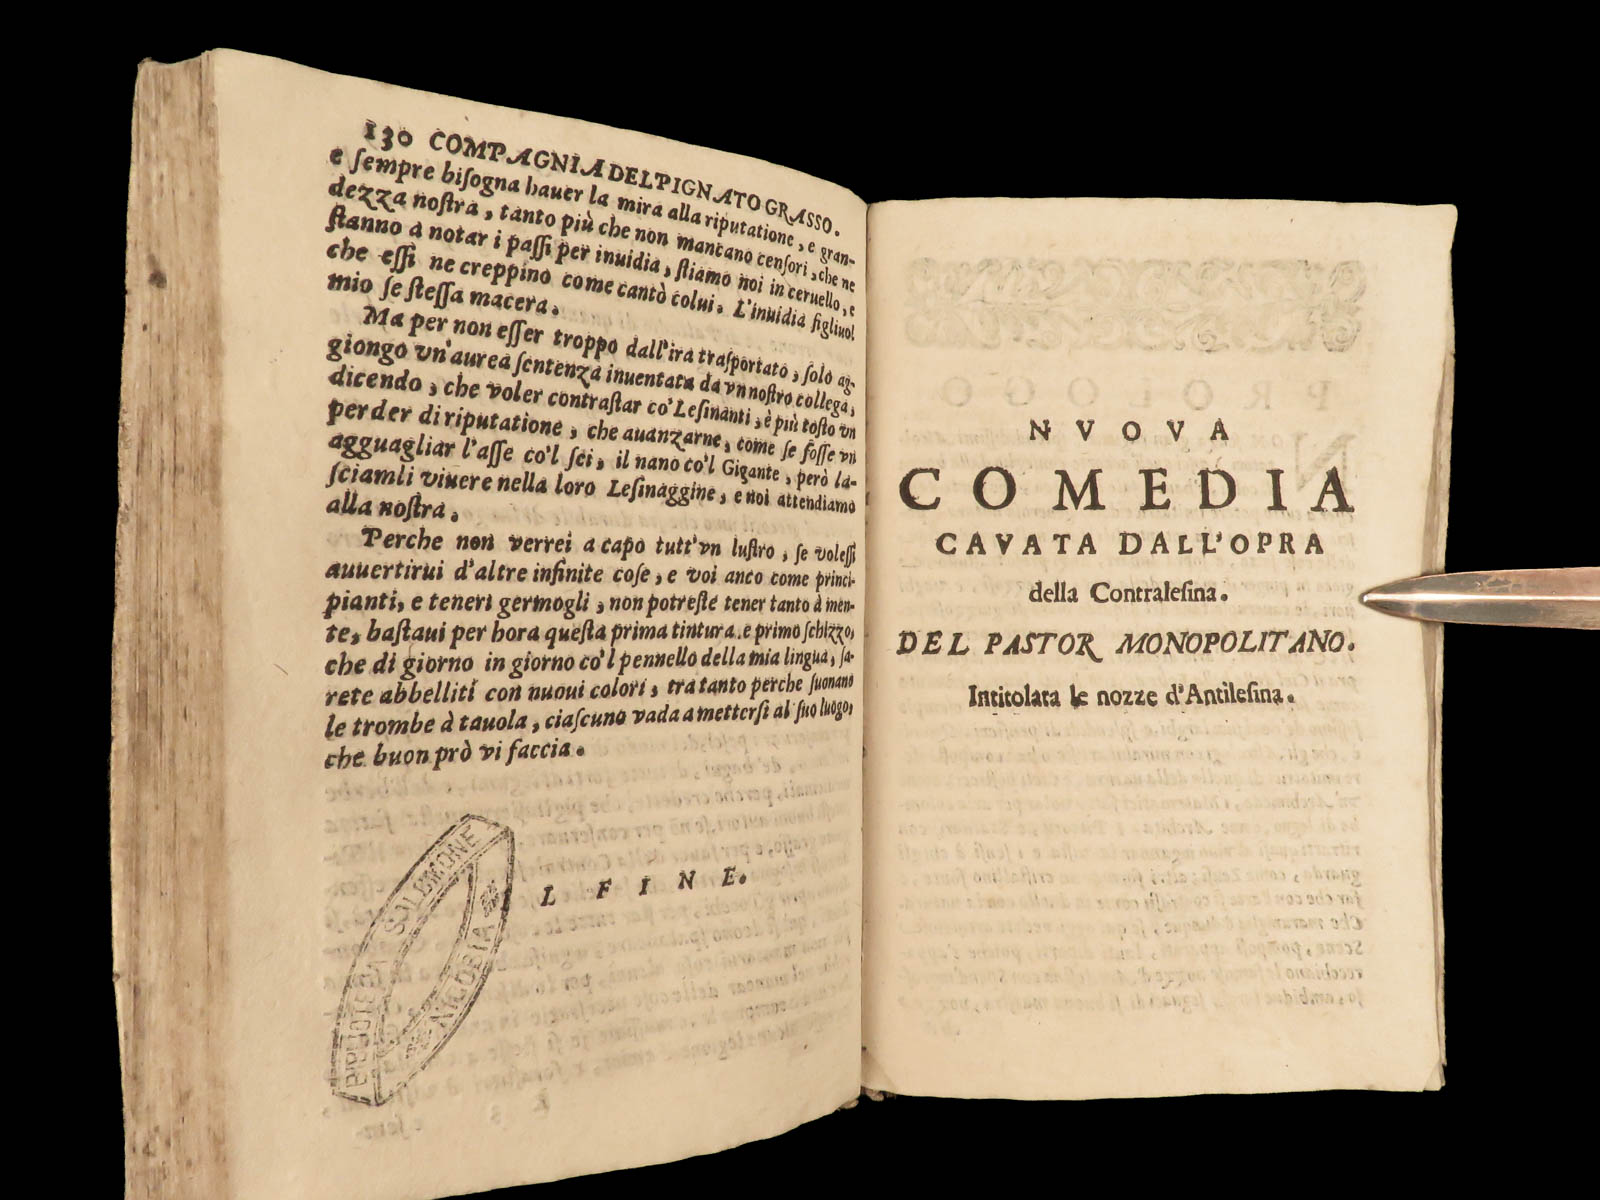 130 COMPAGNIA DEL PIGNATO GRASSO.
e ſempre biſogna hauer la mira alla riputatione, e gran-
dezza noſtra, tanto più che non mancano cenſori, che ne
ſtanno a notar i paſſi per inuidia, ſtiamo noi in ceruello, e
che eſſi ne creppino come cantò colui. L'inuidia figliuol
mio ſe ſteſſa macera.
Ma per non eſſer troppo dall'ira traſportato, ſolo ag-
giongo vn'aurea ſentenza inuentata da vn noſtro collega,
dicendo, che voler contraſtar co'Leſinanti, è più toſto vn
perder di riputatione, che auanzarne, come ſe foſſe vn
agguagliar l'aſſe co'l ſei, il nano co'l Gigante, però la-
ſciamli viuere nella loro Leſinaggine, e noi attendiamo
alla noſtra.
Perche non verrei a capo tutt'vn luſtro, ſe voleſſi
auuertirui d'altre infinite coſe, e voi anco come princi-
pianti, e teneri germogli, non potreſte tener tanto à men-
te, baſtaui per hora queſta prima tintura e primo ſchizzo,
che di giorno in giorno co'l pennello della mia lingua, ſa-
rete abbelliti con nuoui colori, tra tanto perche ſuonano
le trombe à tauola, ciaſcuno vada a metterſi al ſuo luogo,
che buon prò vi faccia.
L FINE.
BIBLIOTECA SOLIMONE
NICODIA
NVOVA
COMEDIA
CAVATA DALL'OPRA
della Contraleſina.
DEL PASTOR MONOPOLITANO.
Intitolata le nozze d'Antileſina.